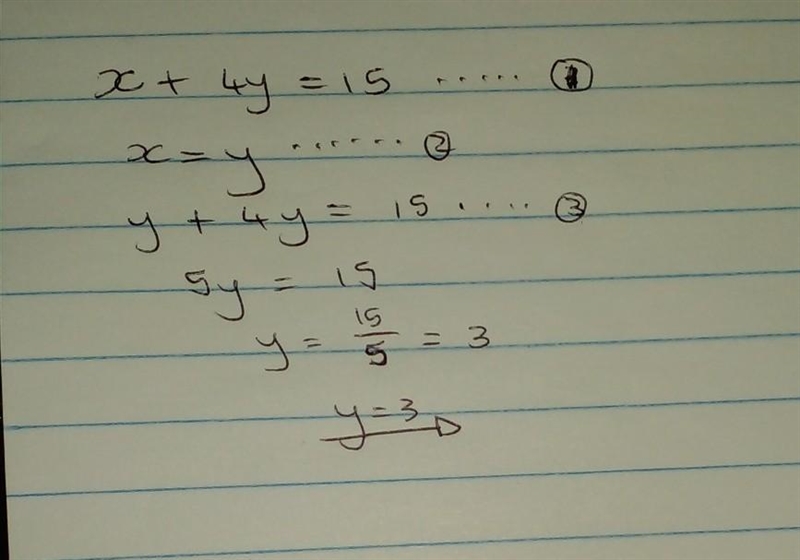 x + 4y = 15 ..... ①
x = y ...... ②
y + 4y = 15 .... ③
5y = 15
y = 15/5 = 3
y = 3